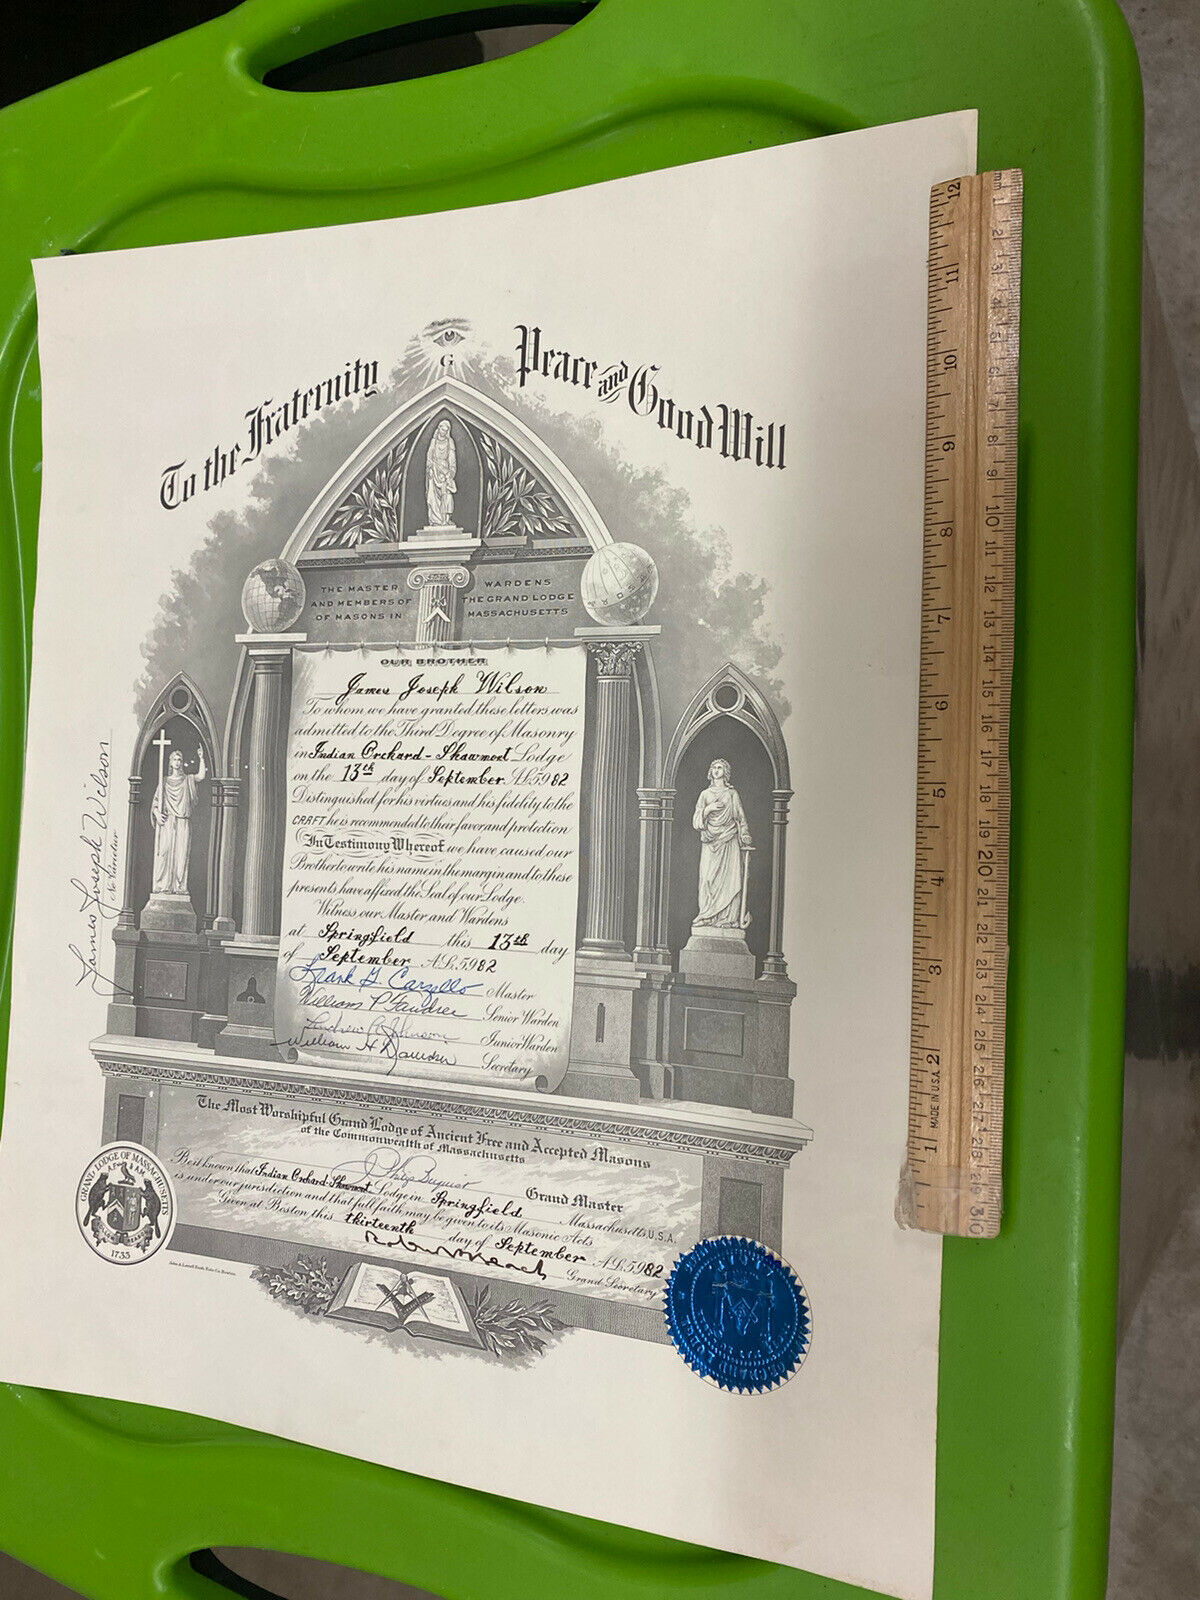 To the Fraternity Peace and Good Will
G
THE MASTER WARDENS
AND MEMBERS OF THE GRAND LODGE
OF MASONS IN MASSACHUSETTS
OUR BROTHER
James Joseph Wilson
To whom we have granted these letters, was
admitted to the Third Degree of Masonry
in Indian Orchard - Shawmont Lodge
on the 13th day of September A.L. 5982
Distinguished for his virtues and his fidelity to the
CRAFT he is recommended to their favor and protection
In Testimony Whereof we have caused our
Brother to write his name in the margin and to these
presents have affixed the Seal of our Lodge.
Witness our Master and Wardens
at Springfield this 13th day
of September A.L. 5982
Frank G. Master
William P. Senior Warden
Andrew Johnson Junior Warden
William H. Secretary
James Joseph Wilson
Ne Varietur
The Most Worshipful Grand Lodge of Ancient Free and Accepted Masons
of the Commonwealth of Massachusetts
Grand Master
Be it known that Indian Orchard-Shawmont Lodge in Springfield Massachusetts U.S.A.
is under our jurisdiction and that full faith may be given to its Masonic Acts
Given at Boston this thirteenth day of September A.L. 5982
Grand Secretary
GRAND LODGE OF MASSACHUSETTS
A.F. & A.M.
1733
12
11
10
9
8
7
6
5
4
3
2
1
MADE IN U.S.A.
1 2 3 4 5 6 7 8 9 10 11 12 13 14 15 16 17 18 19 20 21 22 23 24 25 26 27 28 29 30